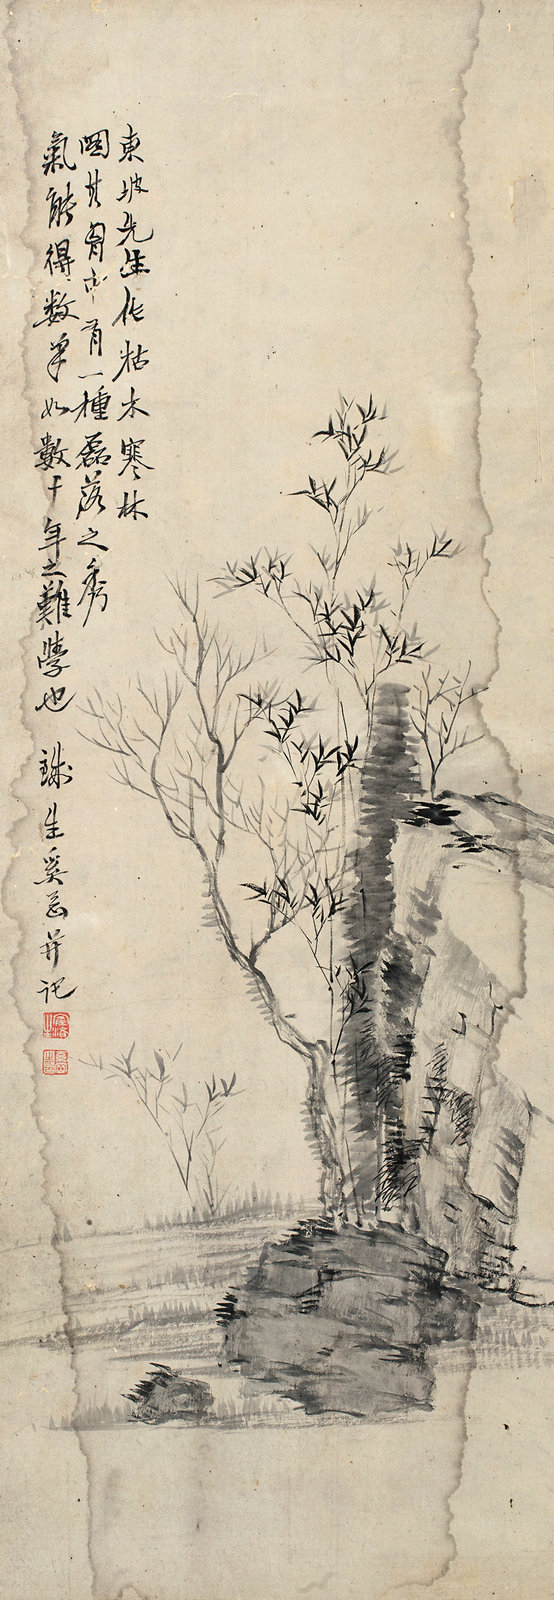 東坡先生作枯木寒林
圖其胷中有一種磊落之秀
氣能得數筆如數十年之難學也 鐵生奚岡并記